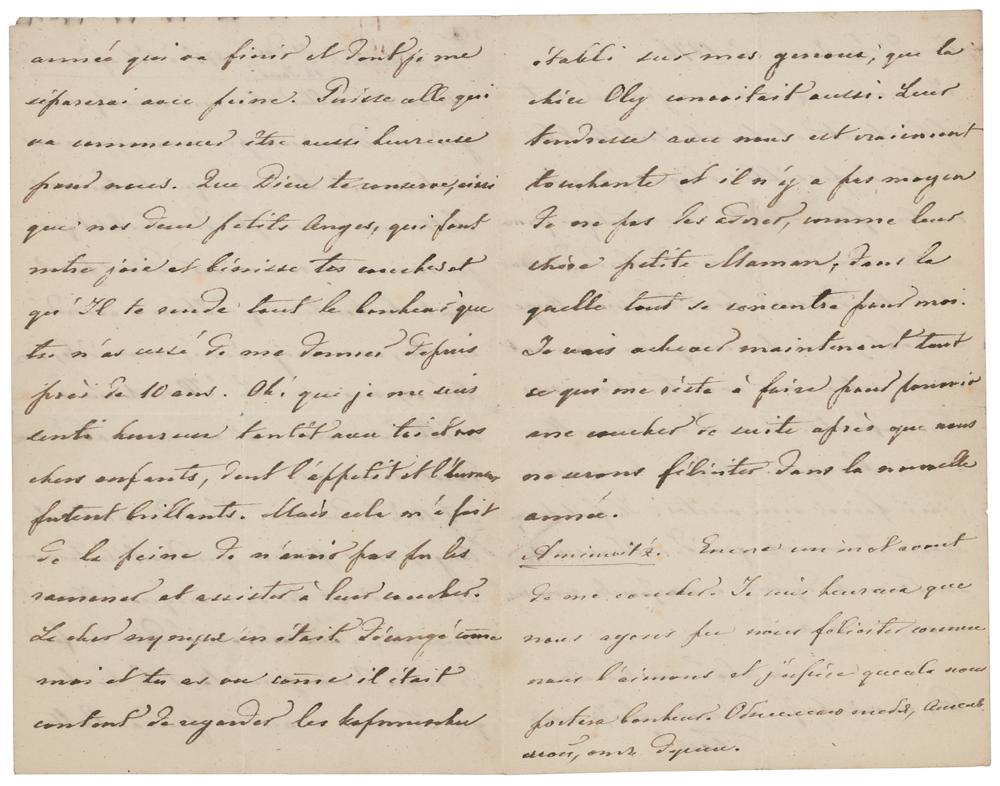 année qui va finir et dont je me
séparerai avec peine. Puisse celle qui
va commencer être aussi heureuse
pour nous. Que Dieu te conserve, ainsi
que nos deux petits Anges, qui font
notre joie et bénisse tes couches et
qu'Il te rende tout le bonheur que
tu n'as cessé de me donner depuis
près de 10 ans. Oh! que je me suis
senti heureux tantôt avec toi et nos
chers enfants, dont l'appétit et l'humeur
furent brillants. Mais cela m'a fait
de la peine de n'avoir pas pu les
ramener et assister à leur coucher.
Le cher en était dérangé comme
moi et tu as vu comme il était
content de regarder les картинки
établi sur mes genoux, que la
chère Oly convoitait aussi. Leur
tendresse avec nous est vraiment
touchante et il n'y a pas moyen
de ne pas les adorer, comme leur
chère petite Maman, dans la
quelle tout se concentre pour moi.
Je vais achever maintenant tout
ce qui me reste à faire pour pouvoir
me coucher de suite après que nous
ne serons féliciter dans la nouvelle
année.
A minuit ½. Encore un mot avant
de me coucher. Je suis heureux que
nous ayons pu nous féliciter comme
nous l'aimons et j'espère que cela nous
portera bonheur. Обнимаю тебя,
моя, отъ души.